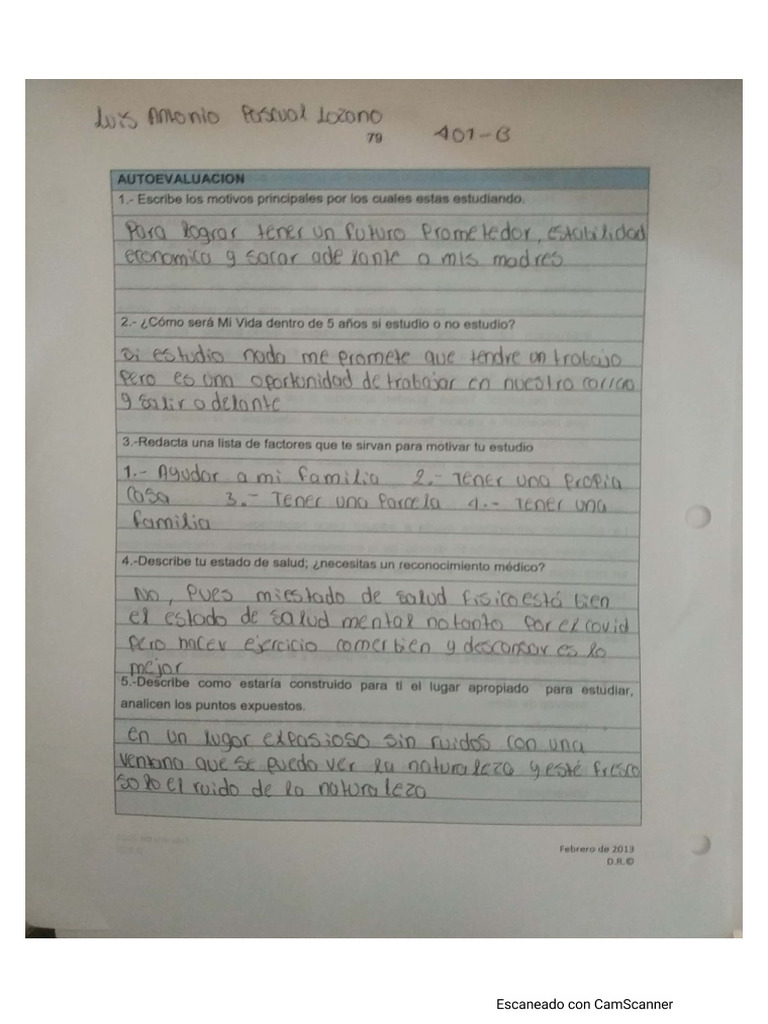 Luis Antonio Pascual Lozano
79 401-B
AUTOEVALUACION
1.- Escribe los motivos principales por los cuales estas estudiando.
Para lograr tener un futuro Prometedor, estabilidad
economica y sacar adelante a mis madres
2.- ¿Cómo será Mi Vida dentro de 5 años si estudio o no estudio?
Si estudio nada me promete que tendre un trabajo
Pero es una oportunidad de trabajar en nuestra
y salir adelante
3.-Redacta una lista de factores que te sirvan para motivar tu estudio
1.- Ayudar a mi familia 2.- Tener una propia
casa 3.- Tener una Parcela 4.- Tener una
familia
4.-Describe tu estado de salud; ¿necesitas un reconocimiento médico?
No, Pues mi estado de salud fisico está bien
el estado de salud mental no tanto por el covid
Pero hacer ejercicio comer bien y descansar es lo
mejor
5.-Describe como estaría construido para ti el lugar apropiado para estudiar,
analicen los puntos expuestos.
en un lugar expasioso sin ruidos con una
ventana que se pueda ver la naturaleza y esté fresco
solo el ruido de la naturaleza
Febrero de 2013
D.R.©
Escaneado con CamScanner